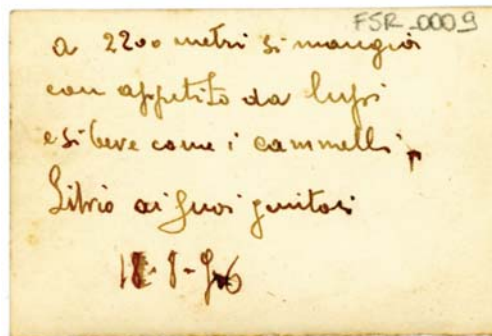 FSR_0009
a 2200 metri si mangia
con appetito da lupi
e si beve come i cammelli
Livio ai suoi genitori
18-8-